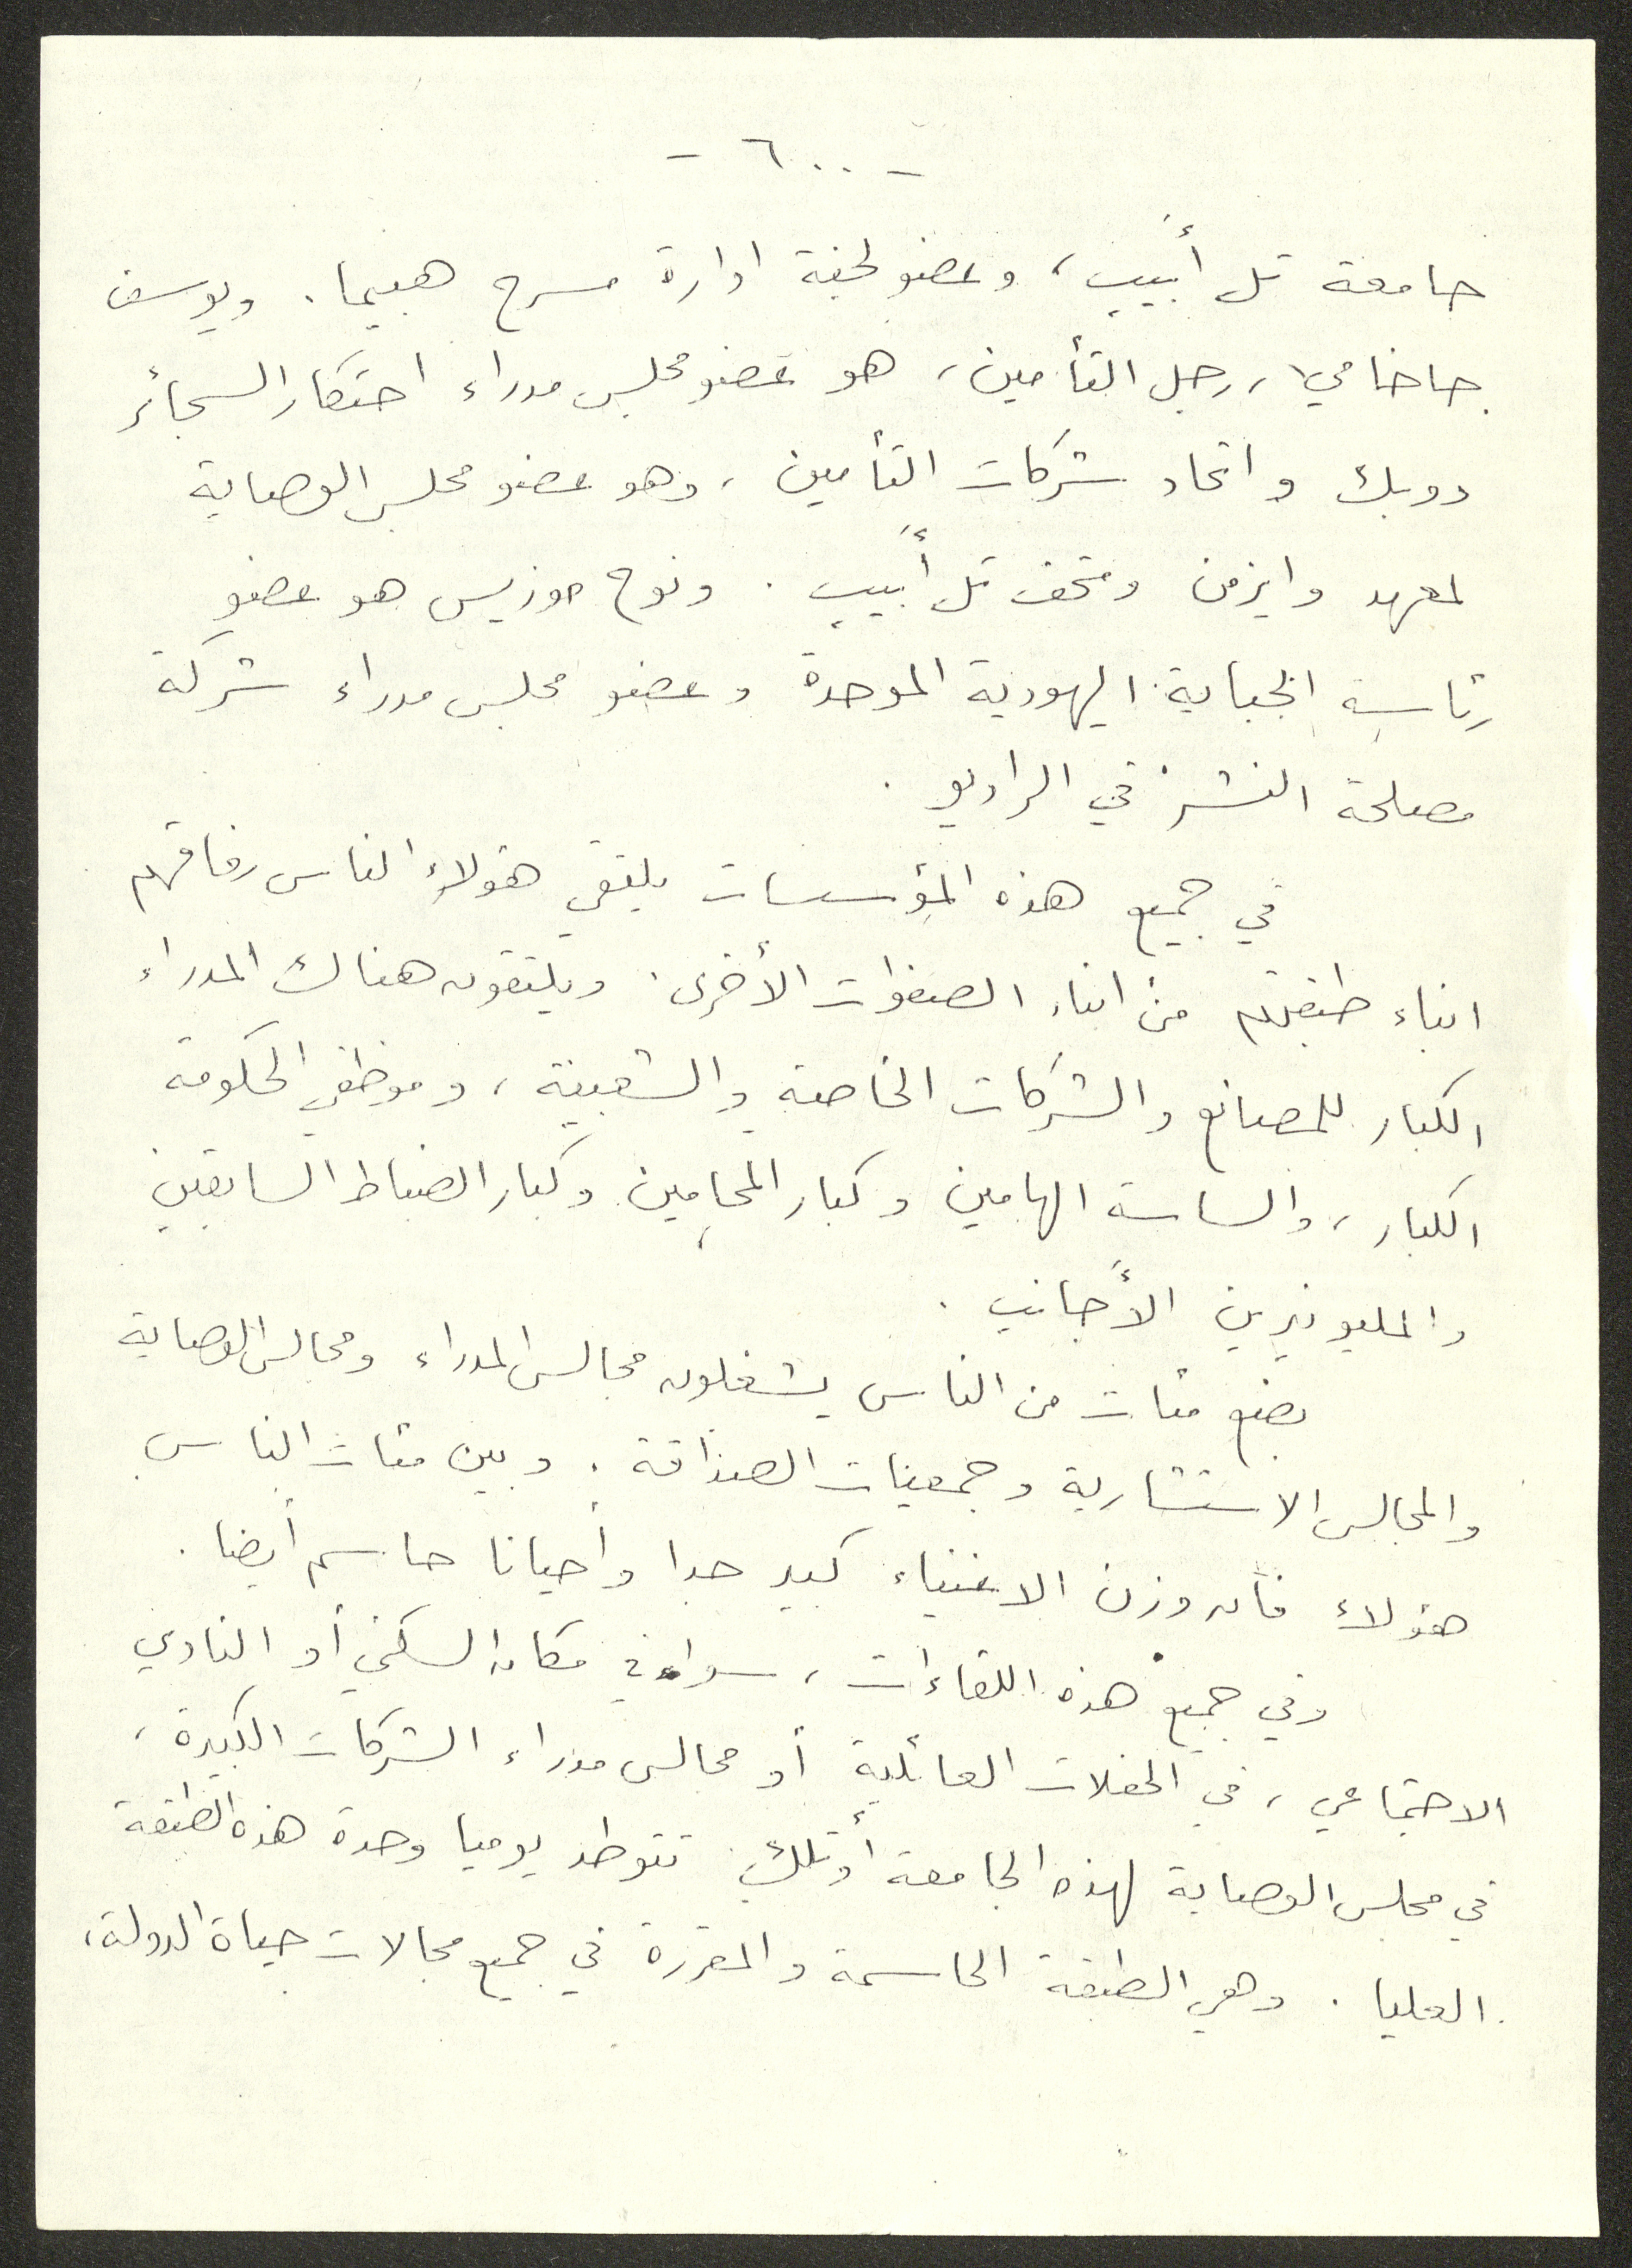 - ٦٠٠ -
جامعة تل أبيب، وعضو لجنة ادارة مسرح هبيما. ويوسف
جاخامي، رجل التأمين، هو عضو مجلس مدراء احتكار السجائر
دوبك واتحاد شركات التأمين، وهو عضو مجلس الوصاية
لمعهد وايزمن ومتحف تل أبيب. ونوح موزيس هو عضو
رئاسة الجباية اليهودية الموحدة وعضو مجلس مدراء شركة
مصلحة النشر في الراديو.
في جميع هذه المؤسسات يلتقي هؤلاء الناس رفاقهم
ابناء طبقتهم من ابناء الصفوات الأخرى. ويلتقون هناك المدراء
الكبار للمصانع والشركات الخاصة والشعبية، وموظفي الحكومة
الكبار، والساسة الهامين وكبار المحامين وكبار الضباط السابقين
والمليونيرين الأجانب.
بضع مئات من الناس يشغلون مجالس المدراء ومجالس الوصاية
والمجالس الاستشارية وجمعيات الصداقة. وبين مئات الناس
هؤلاء فأن وزن الاغنياء كبير جدا وأحيانا حاسم أيضا.
وفي جميع هذه اللقاءات، سواء في مكان السكنى أو النادي
الاجتماعي، في الحفلات العائلية أو مجالس مدراء الشركات الكبيرة،
في مجلس الوصاية لهذه الجامعة أو تلك. تتوطد يوميا وحدة هذه الطبقة
العليا. وهي الطبقة الحاسمة والمقررة في جميع مجالات حياة الدولة،